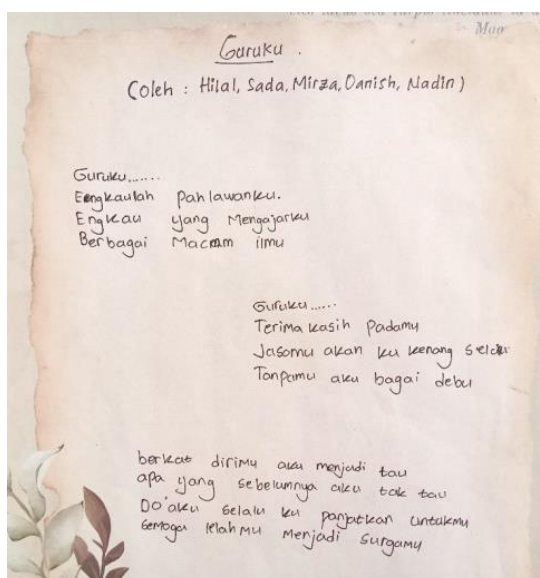 Mao
Guruku.
(oleh : Hilal, Sada, Mirza, Danish, Nadin)
Guruku.......
Engkaulah Pahlawanku.
Engkau yang Mengajarku
Berbagai Macam ilmu
Guruku......
Terima kasih Padamu
Jasamu akan ku kenang selalu
Tanpamu aku bagai debu
berkat dirimu aku menjadi tau
apa yang sebelumnya aku tak tau
Do'aku selalu ku panjatkan untukmu
semoga lelahmu menjadi surgamu